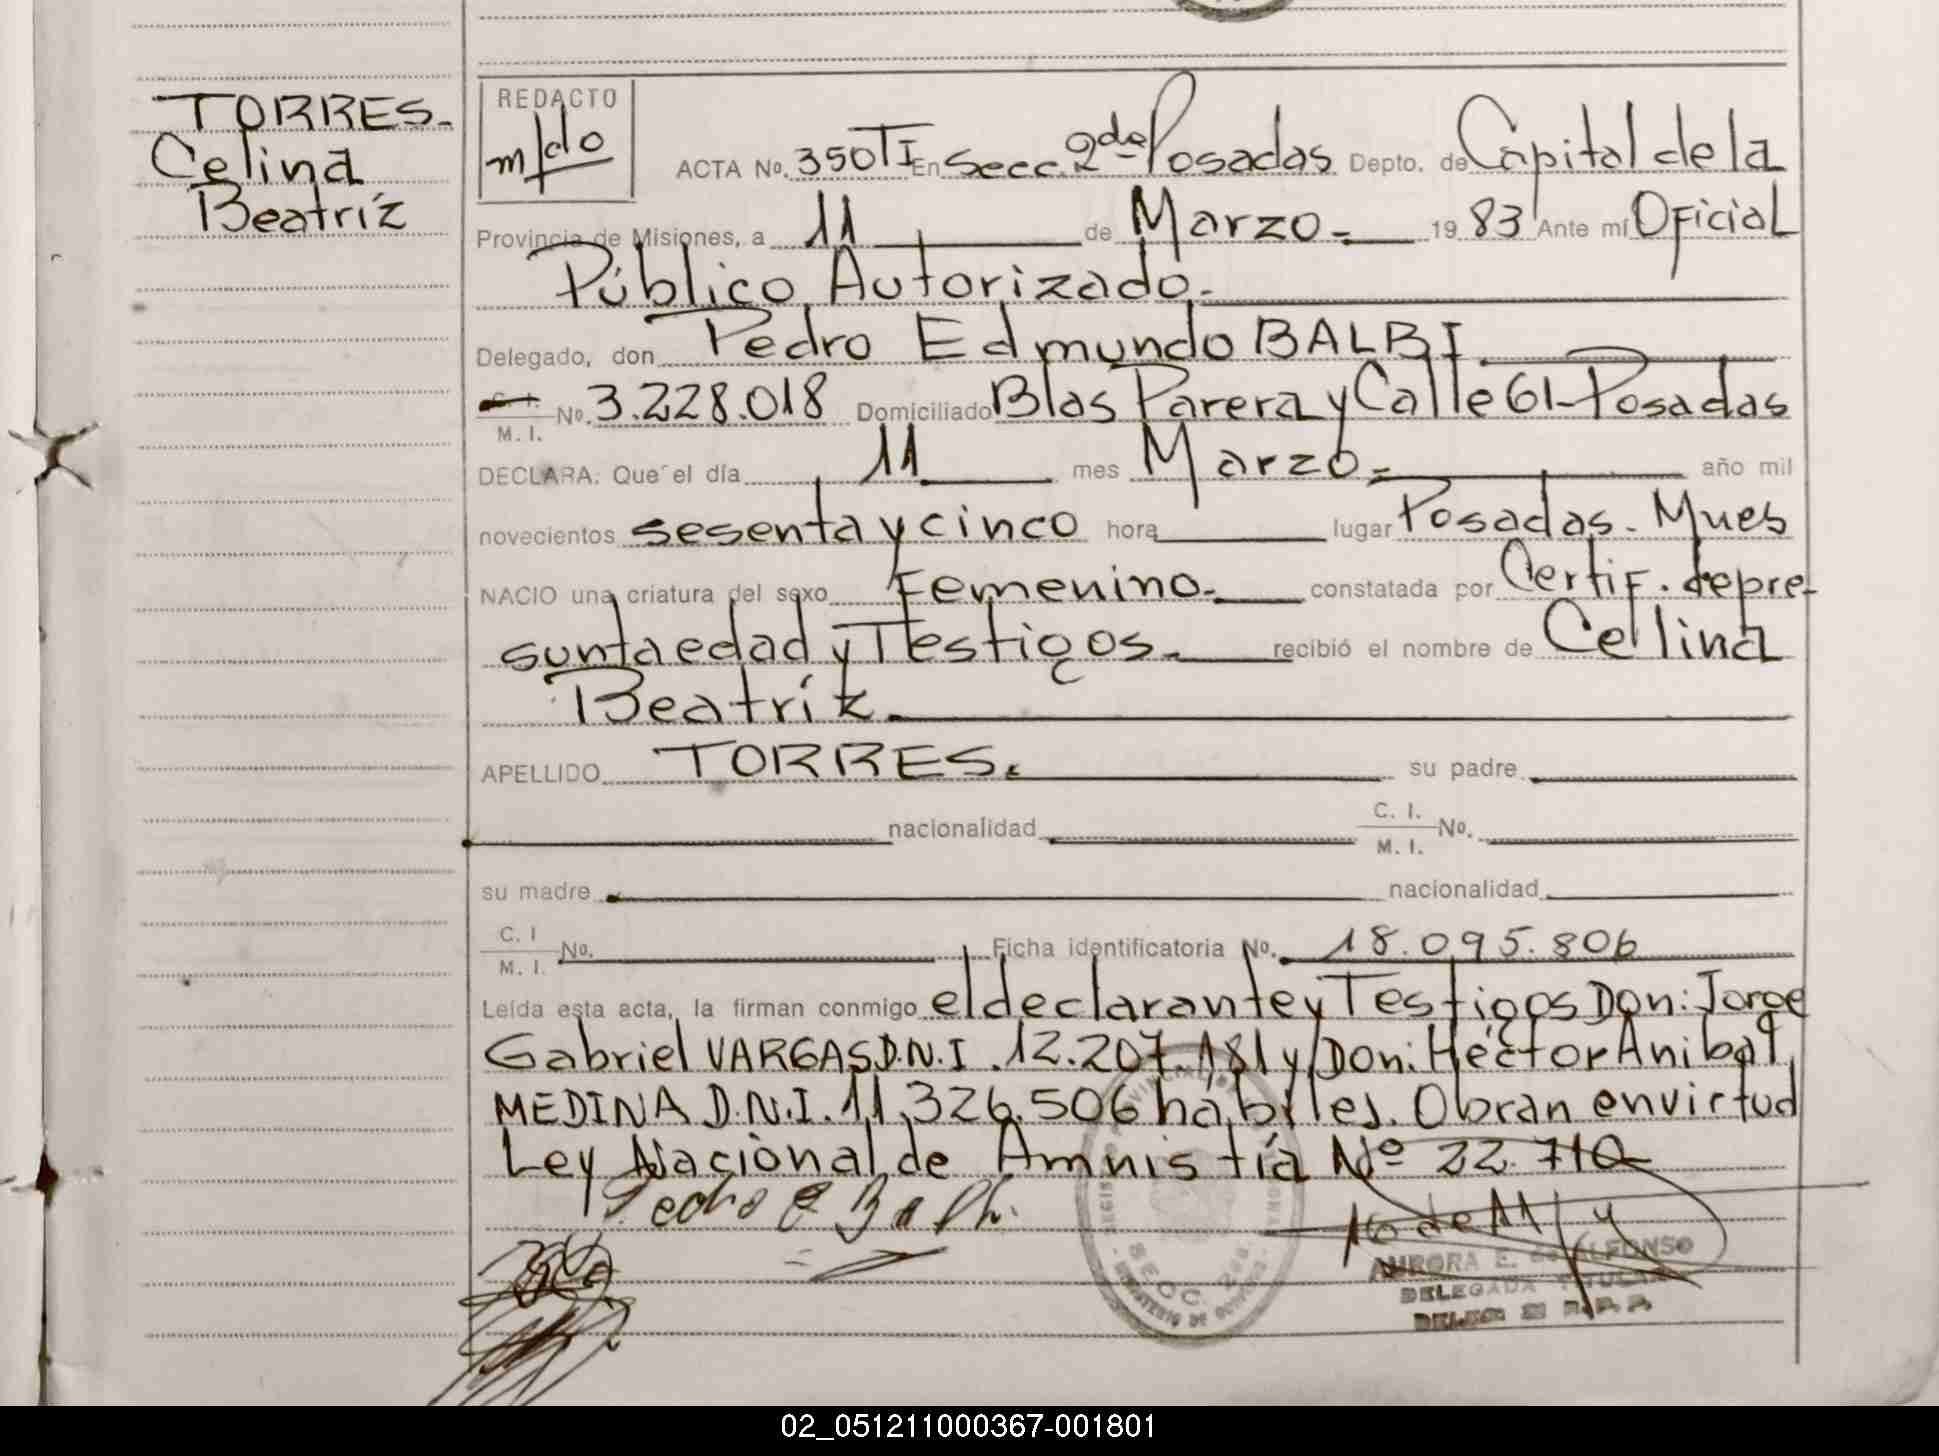 TORRES.
Celina
Beatríz
REDACTO
ACTA No. 350 TI En Secc. 2da Posadas Depto. de Capital de la
Provincia de Misiones, a 11 de Marzo.- 19 83 Ante mí Oficial
Público Autorizado.-
Delegado, don Pedro Edmundo BALBI
C. I. No. 3.228.018 Domiciliado Blas Parera y Calle 61-Posadas
M. I.
DECLARA: Que el día 11 mes Marzo.- año mil
novecientos sesenta y cinco hora lugar Posadas.- Mnes
NACIO una criatura del sexo Femenino.- constatada por Certif. de pre-
sunta edad y Testigos.- recibió el nombre de Celina
Beatríz.
APELLIDO TORRES. su padre
nacionalidad C. I. No.
M. I.
su madre nacionalidad
C. I No. Ficha identificatoria No. 18.095.806
M. I.
Leída esta acta, la firman conmigo el declarante y Testigos Don: Jorge
Gabriel VARGAS D.N.I. 12.207.181 y Don: Héctor Anibal
MEDINA D.N.I. 11.326.506 habiles. Obran en virtud
Ley Nacional de Amnistía Nº 22.710
Pedro E Balbi
SECC. 2da
AURORA E. de ALFONSO
DELEGADA TITULAR
02_051211000367-001801